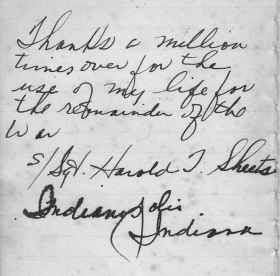 Thanks a million
times over for the
use of my life for
the remainder of the
War
S/Sgt. Harold T. Sheets
Indianapolis
Indiana